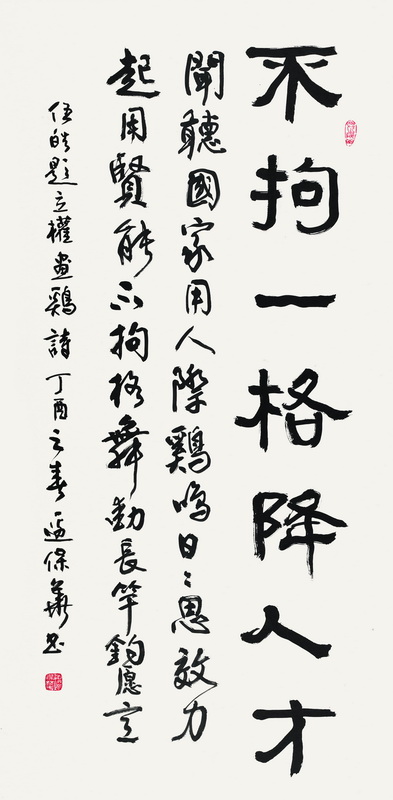 不拘一格降人才
聞聽國家用人際鷄鳴日〻思效力
起用賢能不拘格舞動長竿
伍皓題立權畫鷄詩丁酉之春邊保華書